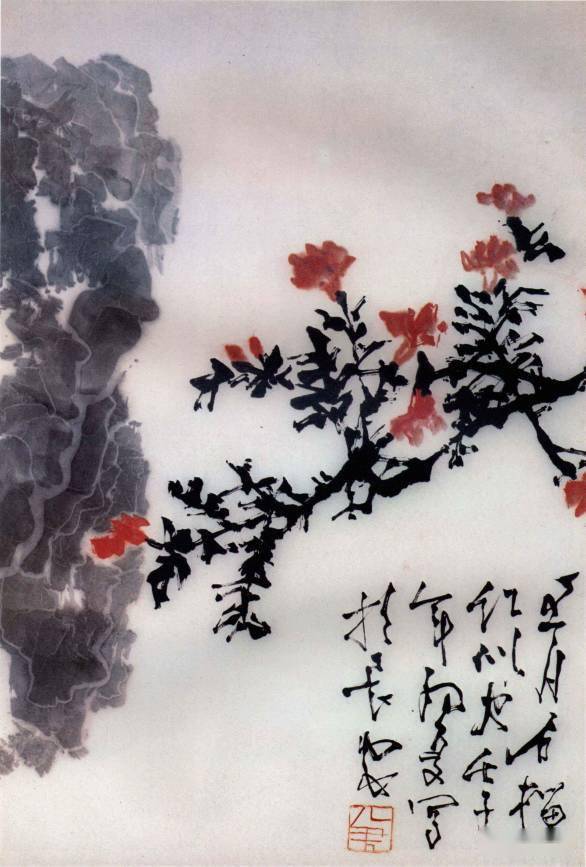 五月石榴
红似火壬子
年初夏写
於長